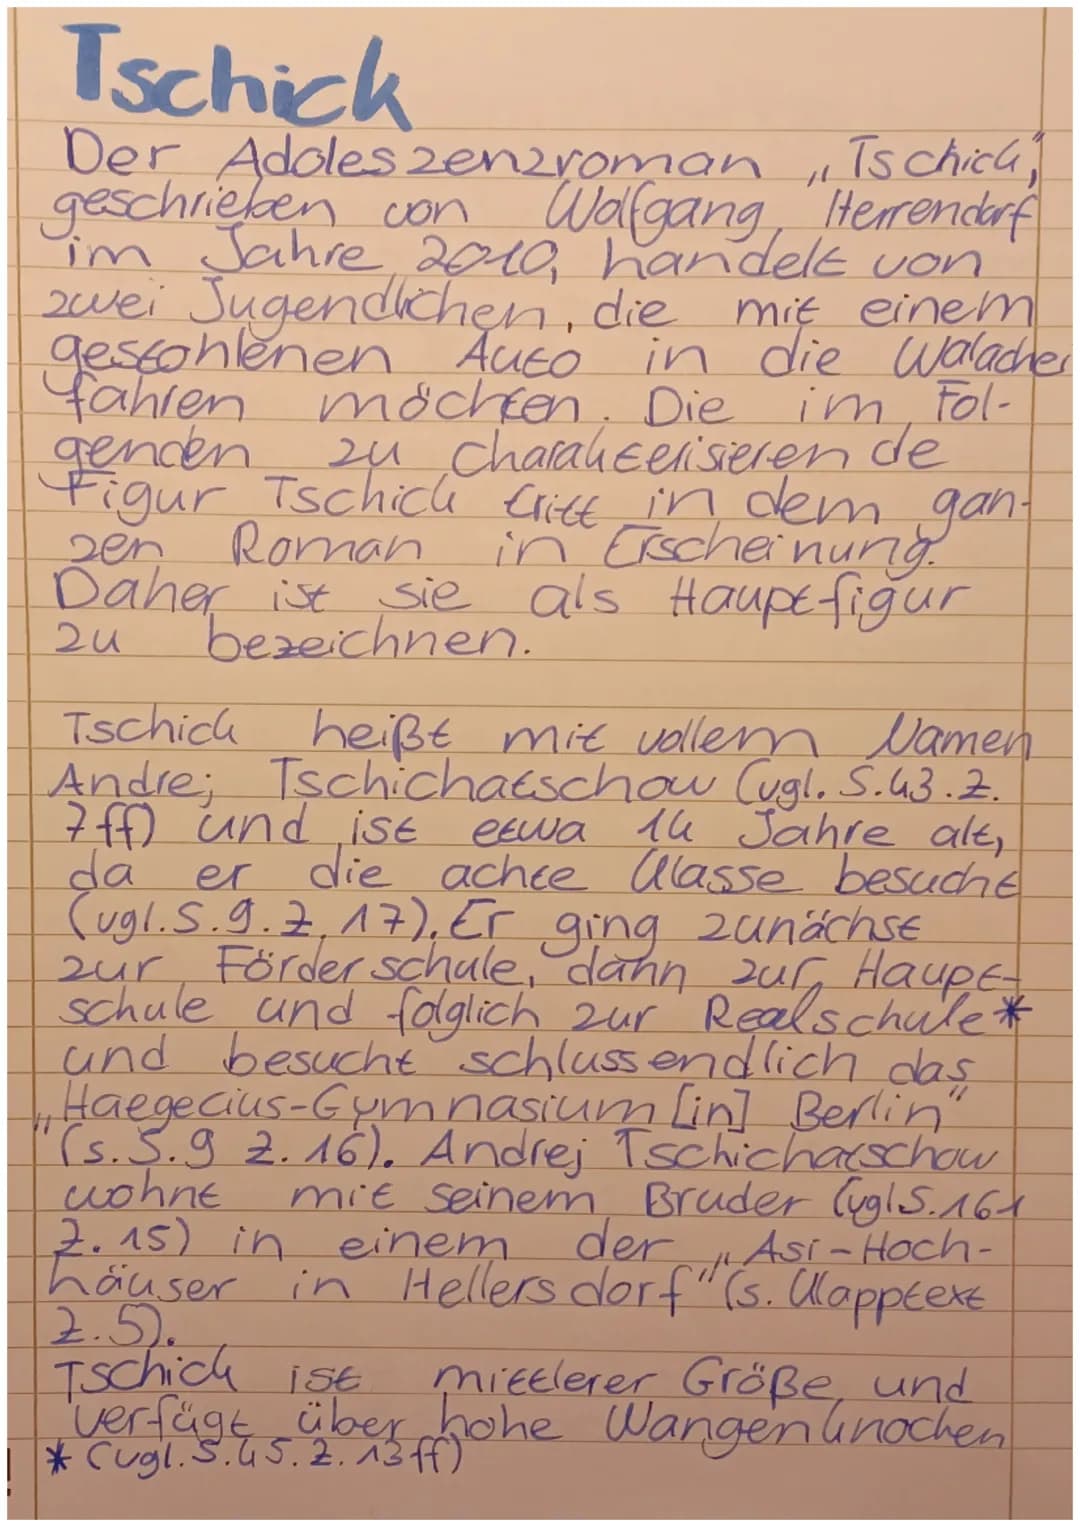 Tschick
Der Adoleszenzroman „Tschick",
geschrieben von Wolfgang Herrendorf
im Jahre 2010, handelt von
zwei Jugendlichen, die mit einem
gestohlenen Auto in die Walachei
fahren möchten. Die im Fol-
genden zu charakterisierende
Figur Tschick tritt in dem gan-
zen Roman in Erscheinung.
Daher ist sie als Hauptfigur
zu bezeichnen.
Tschick heißt mit vollem Namen
Andrej Tschichatschow (vgl. S.43.Z.
7ff) und ist etwa 14 Jahre alt,
da er die achte Klasse besucht
(vgl.S.9.Z.17). Er ging zunächst
zur Förderschule, dann zur Haupt-
schule und folglich zur Realschule*
und besucht schlussendlich das
„Haegecius-Gymnasium [in] Berlin"
(s.S.9 Z.16). Andrej Tschichatschow
wohnt mit seinem Bruder (vgl.S.161
Z.15) in einem der „Asi-Hoch-
häuser in Hellersdorf" (s. Klapptext
Z.5).
Tschick ist mittlerer Größe und
verfügt über hohe Wangenknochen
* (vgl.S.45.Z.13ff)